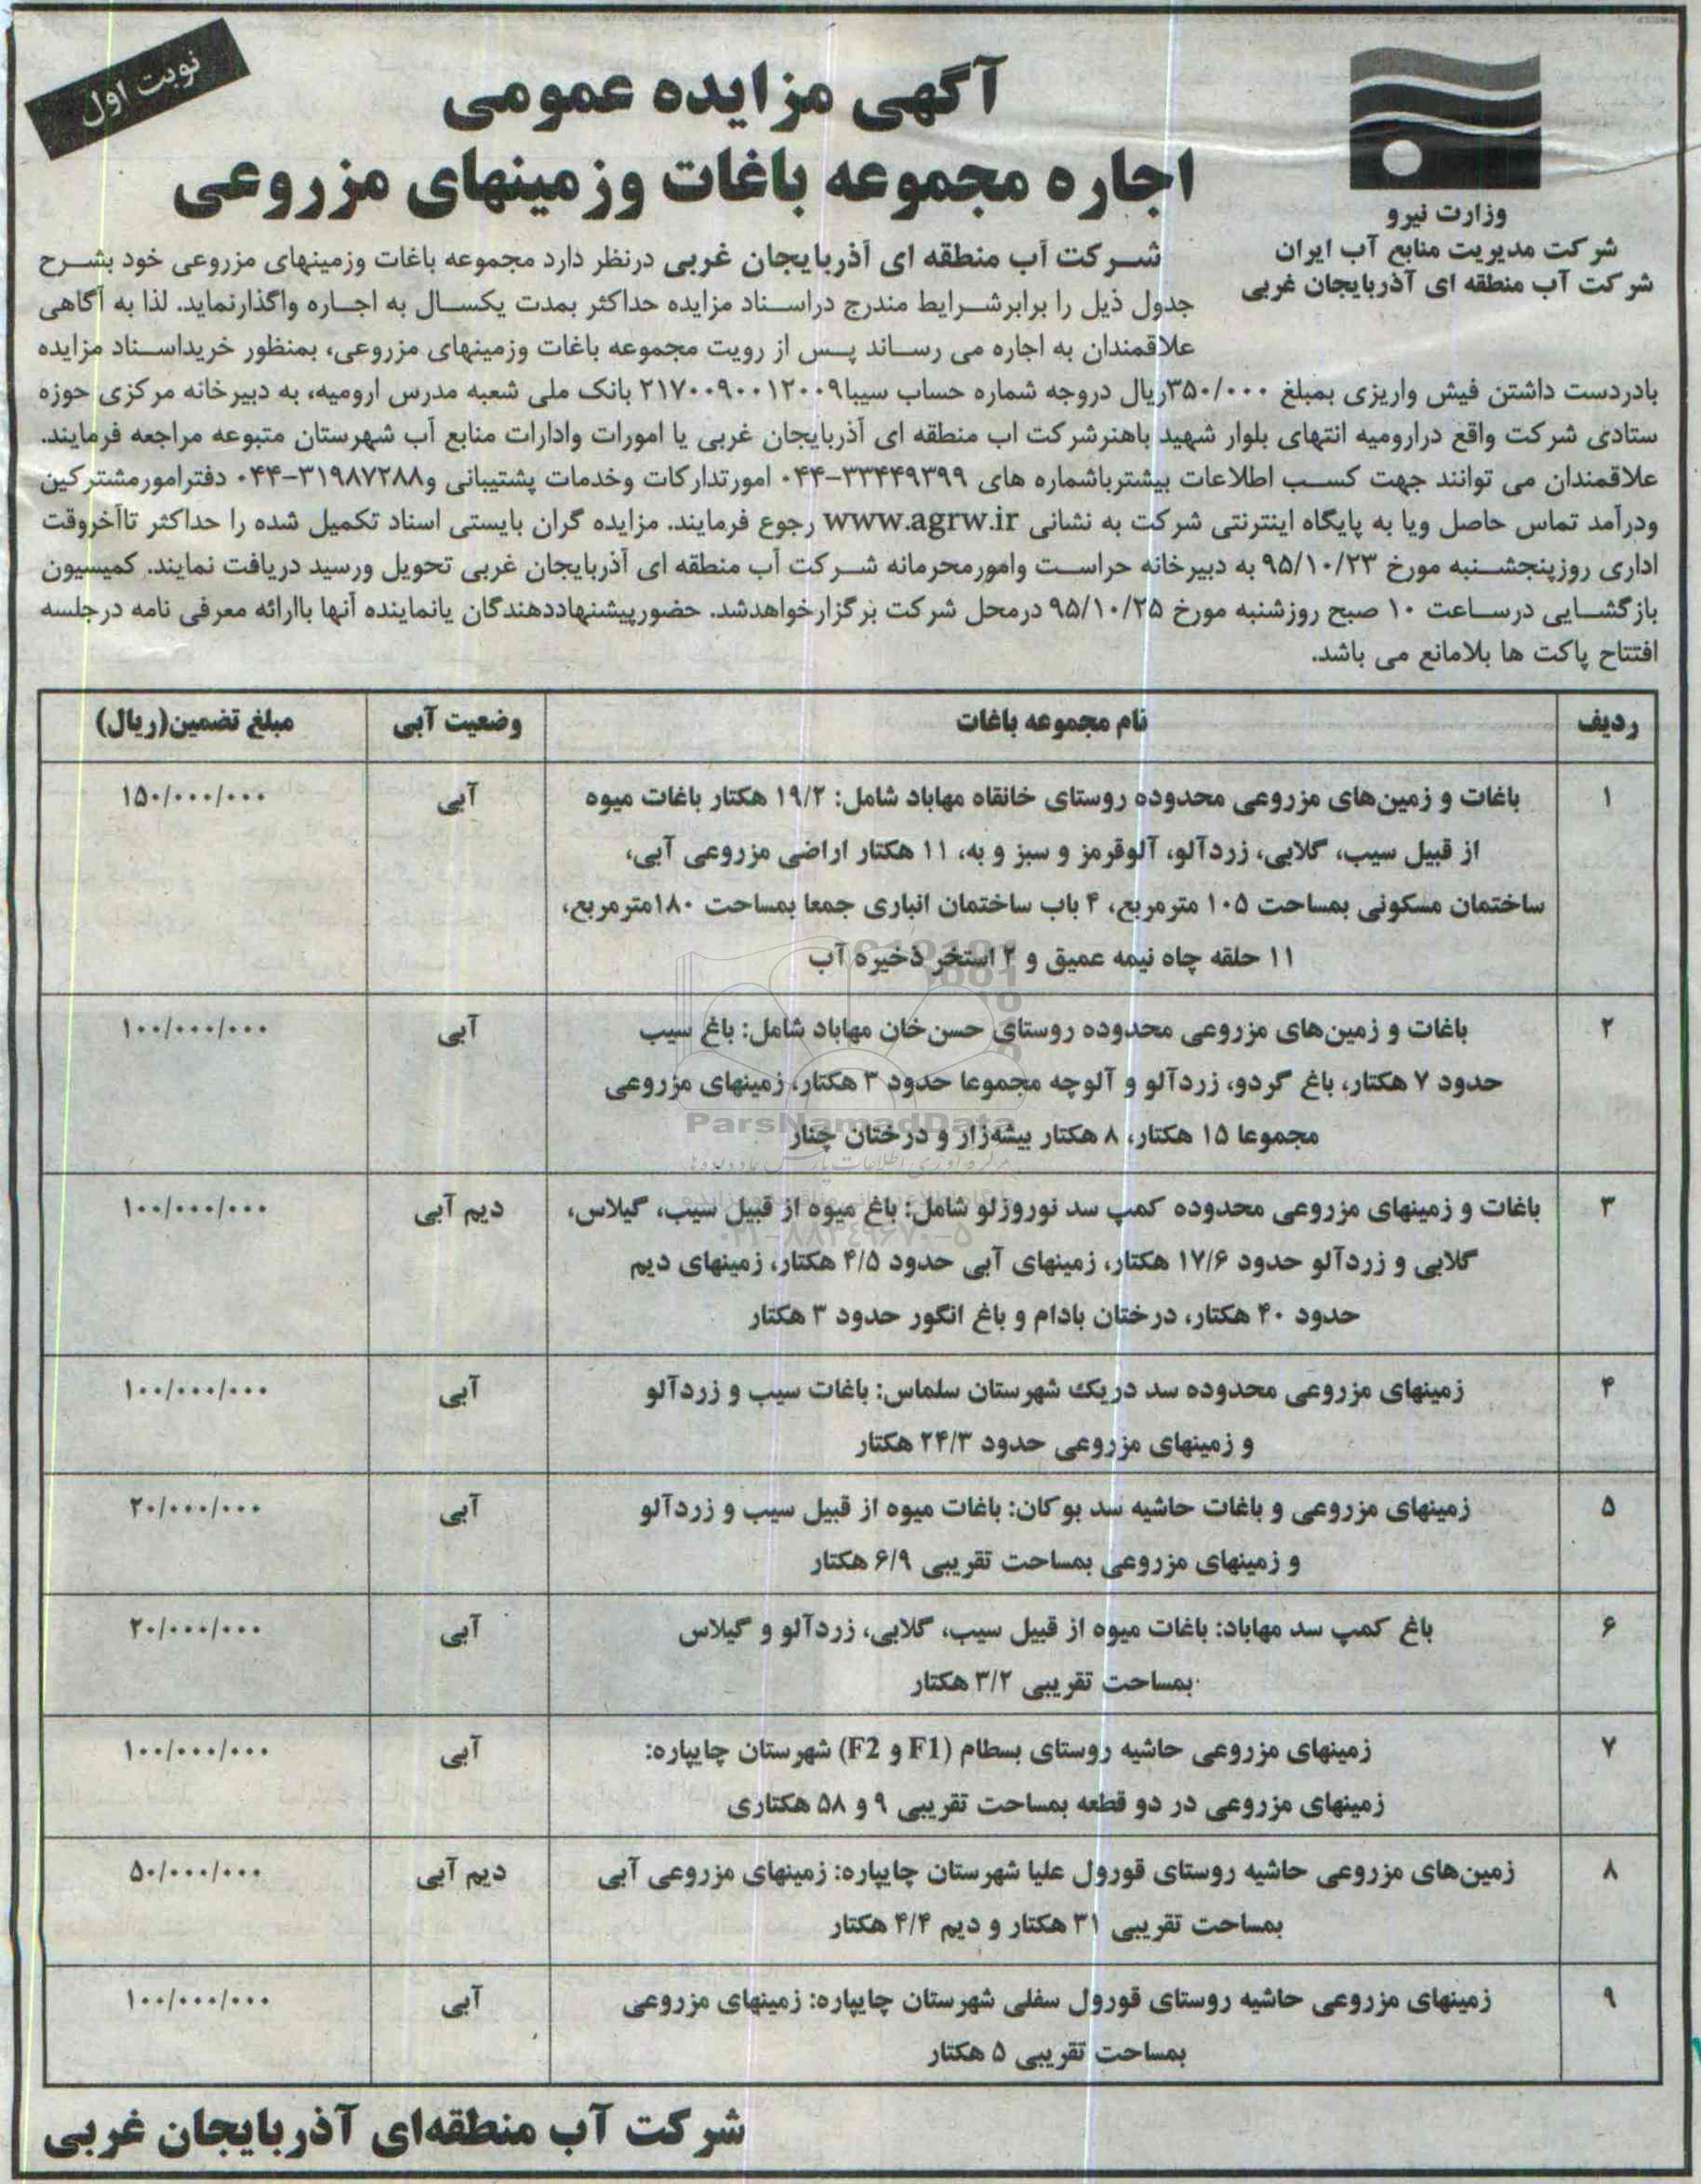 نوبت اول
آگهی مزایده عمومی
اجاره مجموعه باغات وزمینهای مزروعی
وزارت نیرو
شرکت مدیریت منابع آب ایران
شرکت آب منطقه ای آذربایجان غربی
شرکت آب منطقه ای آذربایجان غربی درنظر دارد مجموعه باغات وزمینهای مزروعی خود بشرح
جدول ذیل را برابرشرایط مندرج دراسناد مزایده حداکثر بمدت یکسال به اجاره واگذارنماید. لذا به آگاهی
علاقمندان به اجاره می رساند پس از رویت مجموعه باغات وزمینهای مزروعی، بمنظور خریداسناد مزایده
بادردست داشتن فیش واریزی بمبلغ ۳۵۰/۰۰۰ریال دروجه شماره حساب سیبا۲۱۷۰۰۹۰۰۱۲۰۰۹ بانک ملی شعبه مدرس ارومیه، به دبیرخانه مرکزی حوزه
ستادی شرکت واقع درارومیه انتهای بلوار شهید باهنرشرکت اب منطقه ای آذربایجان غربی یا امورات وادارات منابع آب شهرستان متبوعه مراجعه فرمایند.
علاقمندان می توانند جهت کسب اطلاعات بیشترباشماره های ۳۳۴۴۹۳۹۹-۰۴۴ امورتدارکات وخدمات پشتیبانی و۳۱۹۸۷۲۸۸-۰۴۴ دفترامورمشترکین
ودرآمد تماس حاصل ویا به پایگاه اینترنتی شرکت به نشانی www.agrw.ir رجوع فرمایند. مزایده گران بایستی اسناد تکمیل شده را حداکثر تاآخروقت
اداری روزپنجشنبه مورخ ۹۵/۱۰/۲۳ به دبیرخانه حراست وامورمحرمانه شرکت آب منطقه ای آذربایجان غربی تحویل ورسید دریافت نمایند. کمیسیون
بازگشایی درساعت ۱۰ صبح روزشنبه مورخ ۹۵/۱۰/۲۵ درمحل شرکت برگزارخواهدشد. حضورپیشنهاددهندگان یانماینده آنها باارائه معرفی نامه درجلسه
افتتاح پاکت ها بلامانع می باشد.
ردیف نام مجموعه باغات وضعیت آبی مبلغ تضمین(ریال)
۱ باغات و زمین‌های مزروعی محدوده روستای خانقاه مهاباد شامل: ۱۹/۲ هکتار باغات میوه آبی ۱۵۰/۰۰۰/۰۰۰
از قبیل سیب، گلابی، زردآلو، آلوقرمز و سبز و به، ۱۱ هکتار اراضی مزروعی آبی،
ساختمان مسکونی بمساحت ۱۰۵ مترمربع، ۴ باب ساختمان انباری جمعا بمساحت ۱۸۰مترمربع،
۱۱ حلقه چاه نیمه عمیق و ۲ استخر ذخیره آب
۲ باغات و زمین‌های مزروعی محدوده روستای حسن‌خان مهاباد شامل: باغ سیب آبی ۱۰۰/۰۰۰/۰۰۰
حدود ۷ هکتار، باغ گردو، زردآلو و آلوچه مجموعا حدود ۳ هکتار، زمینهای مزروعی
مجموعا ۱۵ هکتار، ۸ هکتار بیشه‌زار و درختان چنار
ParsNamadData
۳ باغات و زمینهای مزروعی محدوده کمپ سد نوروزلو شامل: باغ میوه از قبیل سیب، گیلاس، دیم آبی ۱۰۰/۰۰۰/۰۰۰
۰۲۱-۸۸۳۴۹۶۷۰-۵
گلابی و زردآلو حدود ۱۷/۶ هکتار، زمینهای آبی حدود ۴/۵ هکتار، زمینهای دیم
حدود ۴۰ هکتار، درختان بادام و باغ انگور حدود ۳ هکتار
۴ زمینهای مزروعی محدوده سد دریک شهرستان سلماس: باغات سیب و زردآلو آبی ۱۰۰/۰۰۰/۰۰۰
و زمینهای مزروعی حدود ۲۴/۳ هکتار
۵ زمینهای مزروعی و باغات حاشیه سد بوکان: باغات میوه از قبیل سیب و زردآلو آبی ۲۰/۰۰۰/۰۰۰
و زمینهای مزروعی بمساحت تقریبی ۶/۹ هکتار
۶ باغ کمپ سد مهاباد: باغات میوه از قبیل سیب، گلابی، زردآلو و گیلاس آبی ۲۰/۰۰۰/۰۰۰
بمساحت تقریبی ۳/۲ هکتار
۷ زمینهای مزروعی حاشیه روستای بسطام (F1 و F2) شهرستان چایپاره: آبی ۱۰۰/۰۰۰/۰۰۰
زمینهای مزروعی در دو قطعه بمساحت تقریبی ۹ و ۵۸ هکتاری
۸ زمین‌های مزروعی حاشیه روستای قورول علیا شهرستان چایپاره: زمینهای مزروعی آبی دیم آبی ۵۰/۰۰۰/۰۰۰
بمساحت تقریبی ۳۱ هکتار و دیم ۴/۴ هکتار
۹ زمینهای مزروعی حاشیه روستای قورول سفلی شهرستان چایپاره: زمینهای مزروعی آبی ۱۰۰/۰۰۰/۰۰۰
بمساحت تقریبی ۵ هکتار
شرکت آب منطقه‌ای آذربایجان غربی